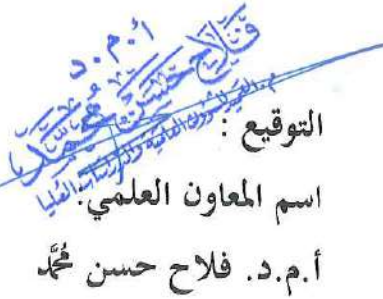 أ.م.د
فلاح حسن محمد
م. العميد للشؤون العلمية والدراسات العليا
التوقيع :
اسم المعاون العلمي:
أ.م.د. فلاح حسن مُحمَّد